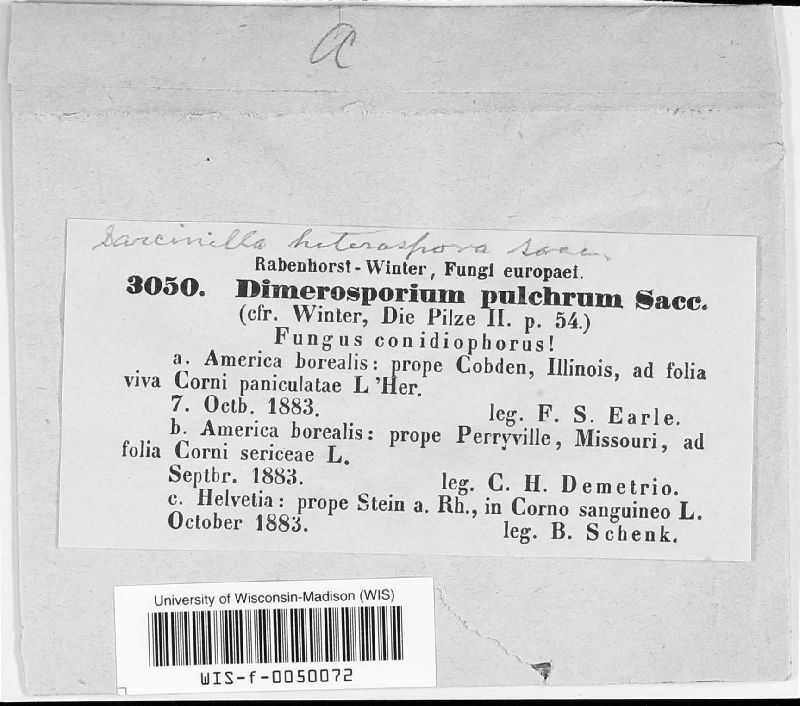 a
Sarcinella heterospora Sacc.
Rabenhorst-Winter, Fungi europaei.
3050. Dimerosporium pulchrum Sacc.
(cfr. Winter, Die Pilze II. p. 54.)
Fungus conidiophorus!
a. America borealis: prope Cobden, Illinois, ad folia
viva Corni paniculatae L'Her.
7. Octb. 1883. leg. F. S. Earle.
b. America borealis: prope Perryville, Missouri, ad
folia Corni sericeae L.
Septbr. 1883. leg. C. H. Demetrio.
c. Helvetia: prope Stein a. Rh., in Corno sanguineo L.
October 1883. leg. B. Schenk.
University of Wisconsin-Madison (WIS)
WIS-f-0050072